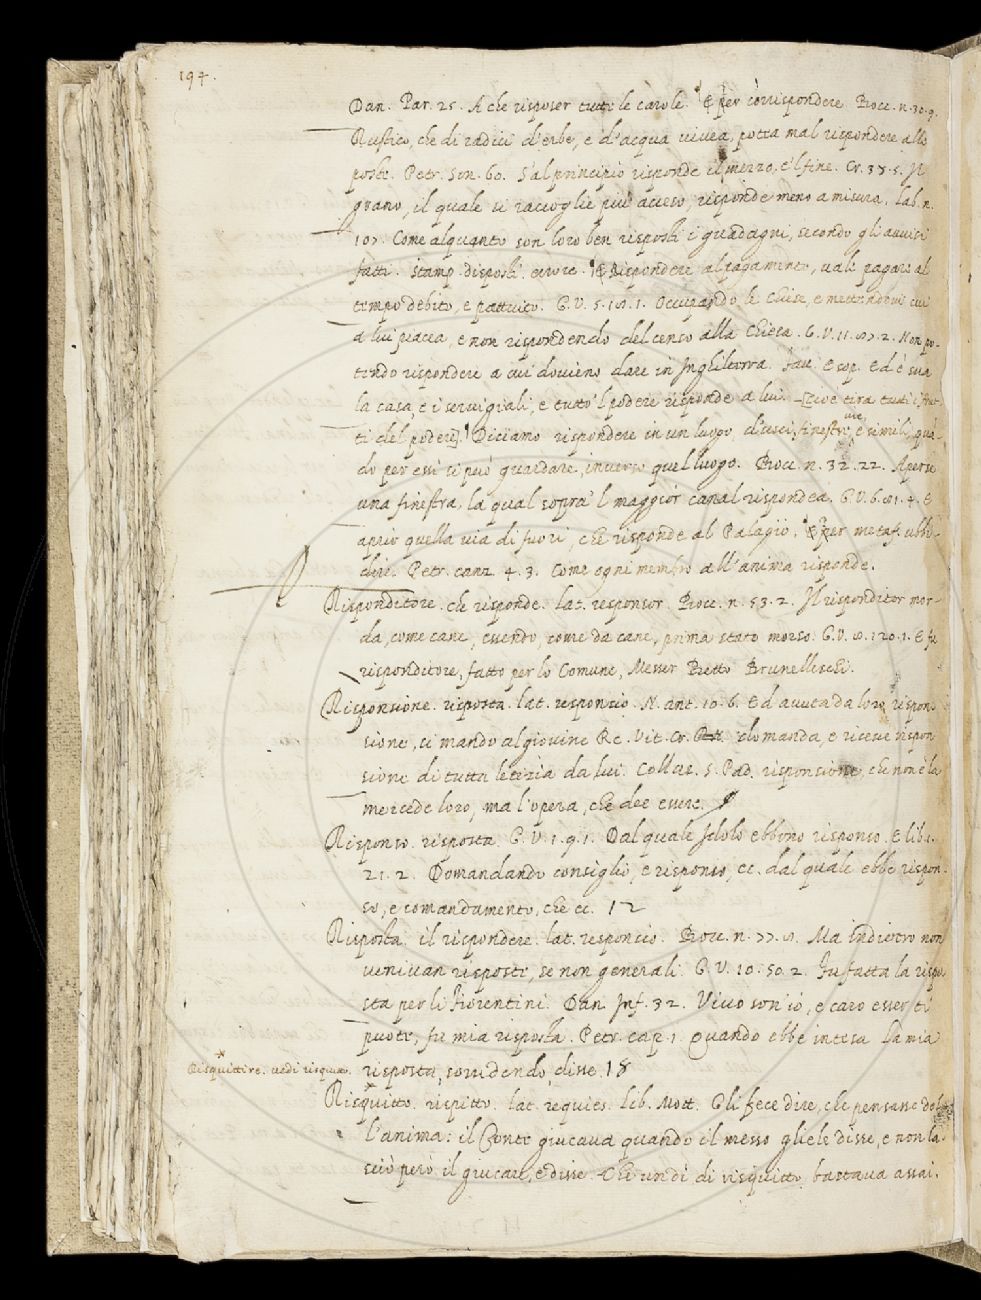 194.
Dan. Par. 25. A che risposer tutte le càrole. ¶ E per corrispondere Bocc. n. 30. 9.
Rustico, che di radici d'erbe, e d'acqua vivea, potea mal rispondere alle
poste. Petr. Son. 60. S'al principio risponde il mezzo, e'l fine. Cr. 3. 7. 5. Il
grano, il quale si raccoglie più acceso, risponde meno a misura. Lab. n.
107. Come alquanto son loro ben risposti i guadagni, secondo gli avvisi
fatti. Stamp. disposti. errore. ¶ E Rispondere al pagamento, vale pagare al
tempo debito, e pattuito. G. V. 5. 1. Occupando le Chiese, e mettendovi cui
a lui piacea, e non rispondendo del censo alla Chiesa. G. V. 11. 87. 2. Non po-
tendo rispondere a cui dovieno dare in Inghilterra. Fav. Esop. Ed è sua
la casa, e i servigiali, e tutto 'l podere risponde a lui. [cioè tira tutti i frut-
ti del podere]. ¶ Diciamo rispondere in un luogo, d'usci, finestre, vie, e simili, quā-
do per essi si può guardare, inverso quel luogo. Bocc. n. 32. 22. Aperse
una finestra, la qual sopra 'l maggior canal rispondea. G. V. 6. 81. 4. E
aprio quella via di fuori, che risponde al Palagio. ¶ E per metaf. ubbi-
dire. Petr. canz. 4. 3. Come ogni membro all'anima risponde.
Risponditore. che risponde. lat. responsor. Bocc. n. 53. 2. Il risponditor mor-
da, come cane, essendo, come da cane, prima stato morso. G. V. 8. 120. 1. E fu
risponditore, fatto per lo Comune, Messer Betto Brunelleschi.
Risponsione. risposta. lat. responsio. N. ant. 10. 6. Ed avuta da loro rispon-
sione, si mandò al giovine Re. Vit. Cr. domanda, e riceve rispon
sione di tutta letizia da lui. Collaz. S. Pad. risponsione, che non è la
mercede loro, ma l'opera, che dee essere.
Risponso. risposta. G. V. 1. 9. 1. Dal quale Idolo ebbono risponso. E lib. 1.
21. 2. Domandando consiglio, e risponso, ec. dal quale ebbe rispon-
so, e comandamento, che ec. 12
Risposta. il rispondere. lat. responsio. Bocc. n. 77. 8. Ma indietro non
venivan risposte, se non generali. G. V. 10. 50. 2. Fu fatta la rispo-
sta per li Fiorentini. Dan. Inf. 32. Vivo son'io, e caro esser ti
puote, fu mia risposta. Petr. cap. 1. Quando ebbe intesa la mia
* Risquittire. vedi risquitto. risposta, sorridendo, disse. 18
Risquitto. rispitto. lat. requies. Lib. Mott. Gli fece dire, che pensasse del-
l'anima: il Conte giucava quando il messo gliele disse, e non la-
sciò però il giucare, e disse. Che un dì di risquitto, bastava assai.